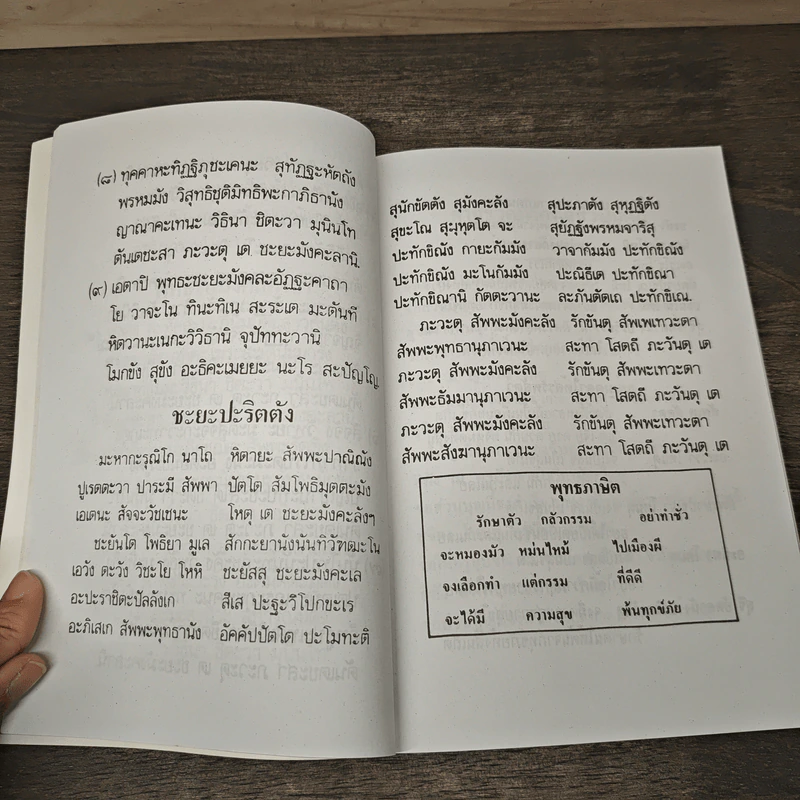 (๘) ทุคคาหะทิฏฐิภุชะเคนะ สุทัฏฐะหัตถัง
พรหมมัง วิสุทธิชุติมิทธิพะกาภิธานัง
ญาณาคะเทนะ วิธินา ชิตะวา มุนินโท
ตันเตชะสา ภะวะตุ เต ชะยะมังคะลานิ.
(๙) เอตาปิ พุทธะชะยะมังคะละอัฏฐะคาถา
โย วาจะโน ทินะทิเน สะระเต มะตันที
หิตวานะเนกะวิวิธานิ จุปัททะวานิ
โมกขัง สุขัง อะธิคะเมยยะ นะโร สะปัญโญ
ชะยะปะริตตัง
มะหาการุณิโก นาโถ หิตายะ สัพพะปาณิณัง
ปูเรตตะวา ปาระมี สัพพา ปัตโต สัมโพธิมุตตะมัง
เอเตนะ สัจจะวัชเชนะ โหตุ เต ชะยะมังคะลังๆ
ชะยันโต โพธิยา มูเล สักกะยานังนันทิวัฑฒะโน
เอวัง ตะวัง วิชะโย โหหิ ชะยัสสุ ชะยะมังคะเล
อะปะราชิตะปัลลังเก สีเส ปะฐะวิโปกขะเร
อะภิเสเก สัพพะพุทธานัง อัคคัปปัตโต ปะโมทะติ
สุนักขัตตัง สุมังคะลัง สุปะภาตัง สุหุฏฐิตัง
สุขะโณ สุมุหุตโต จะ สุยัฏฐังพรหมจาริสุ
ปะทักขิณัง กายะกัมมัง วาจากัมมัง ปะทักขิณัง
ปะทักขิณัง มะโนกัมมัง ปะณิธีเต ปะทักขิณา
ปะทักขิณานิ กัตตะวานะ ละภันตัตเถ ปะทักขิเณ.
ภะวะตุ สัพพะมังคะลัง รักขันตุ สัพเพเทวะตา
สัพพะพุทธานุภาเวนะ สะทา โสตถี ภะวันตุ เต
ภะวะตุ สัพพะมังคะลัง รักขันตุ สัพพะเทวะตา
สัพพะธัมมานุภาเวนะ สะทา โสตถี ภะวันตุ เต
ภะวะตุ สัพพะมังคะลัง รักขันตุ สัพพะเทวะตา
สัพพะสังฆานุภาเวนะ สะทา โสตถี ภะวันตุ เต
พุทธภาษิต
รักษาตัว กลัวกรรม อย่าทำชั่ว
จะหมองมัว หม่นไหม้ ไปเมืองผี
จงเลือกทำ แต่กรรม ที่ดีดี
จะได้มี ความสุข พ้นทุกข์ภัย